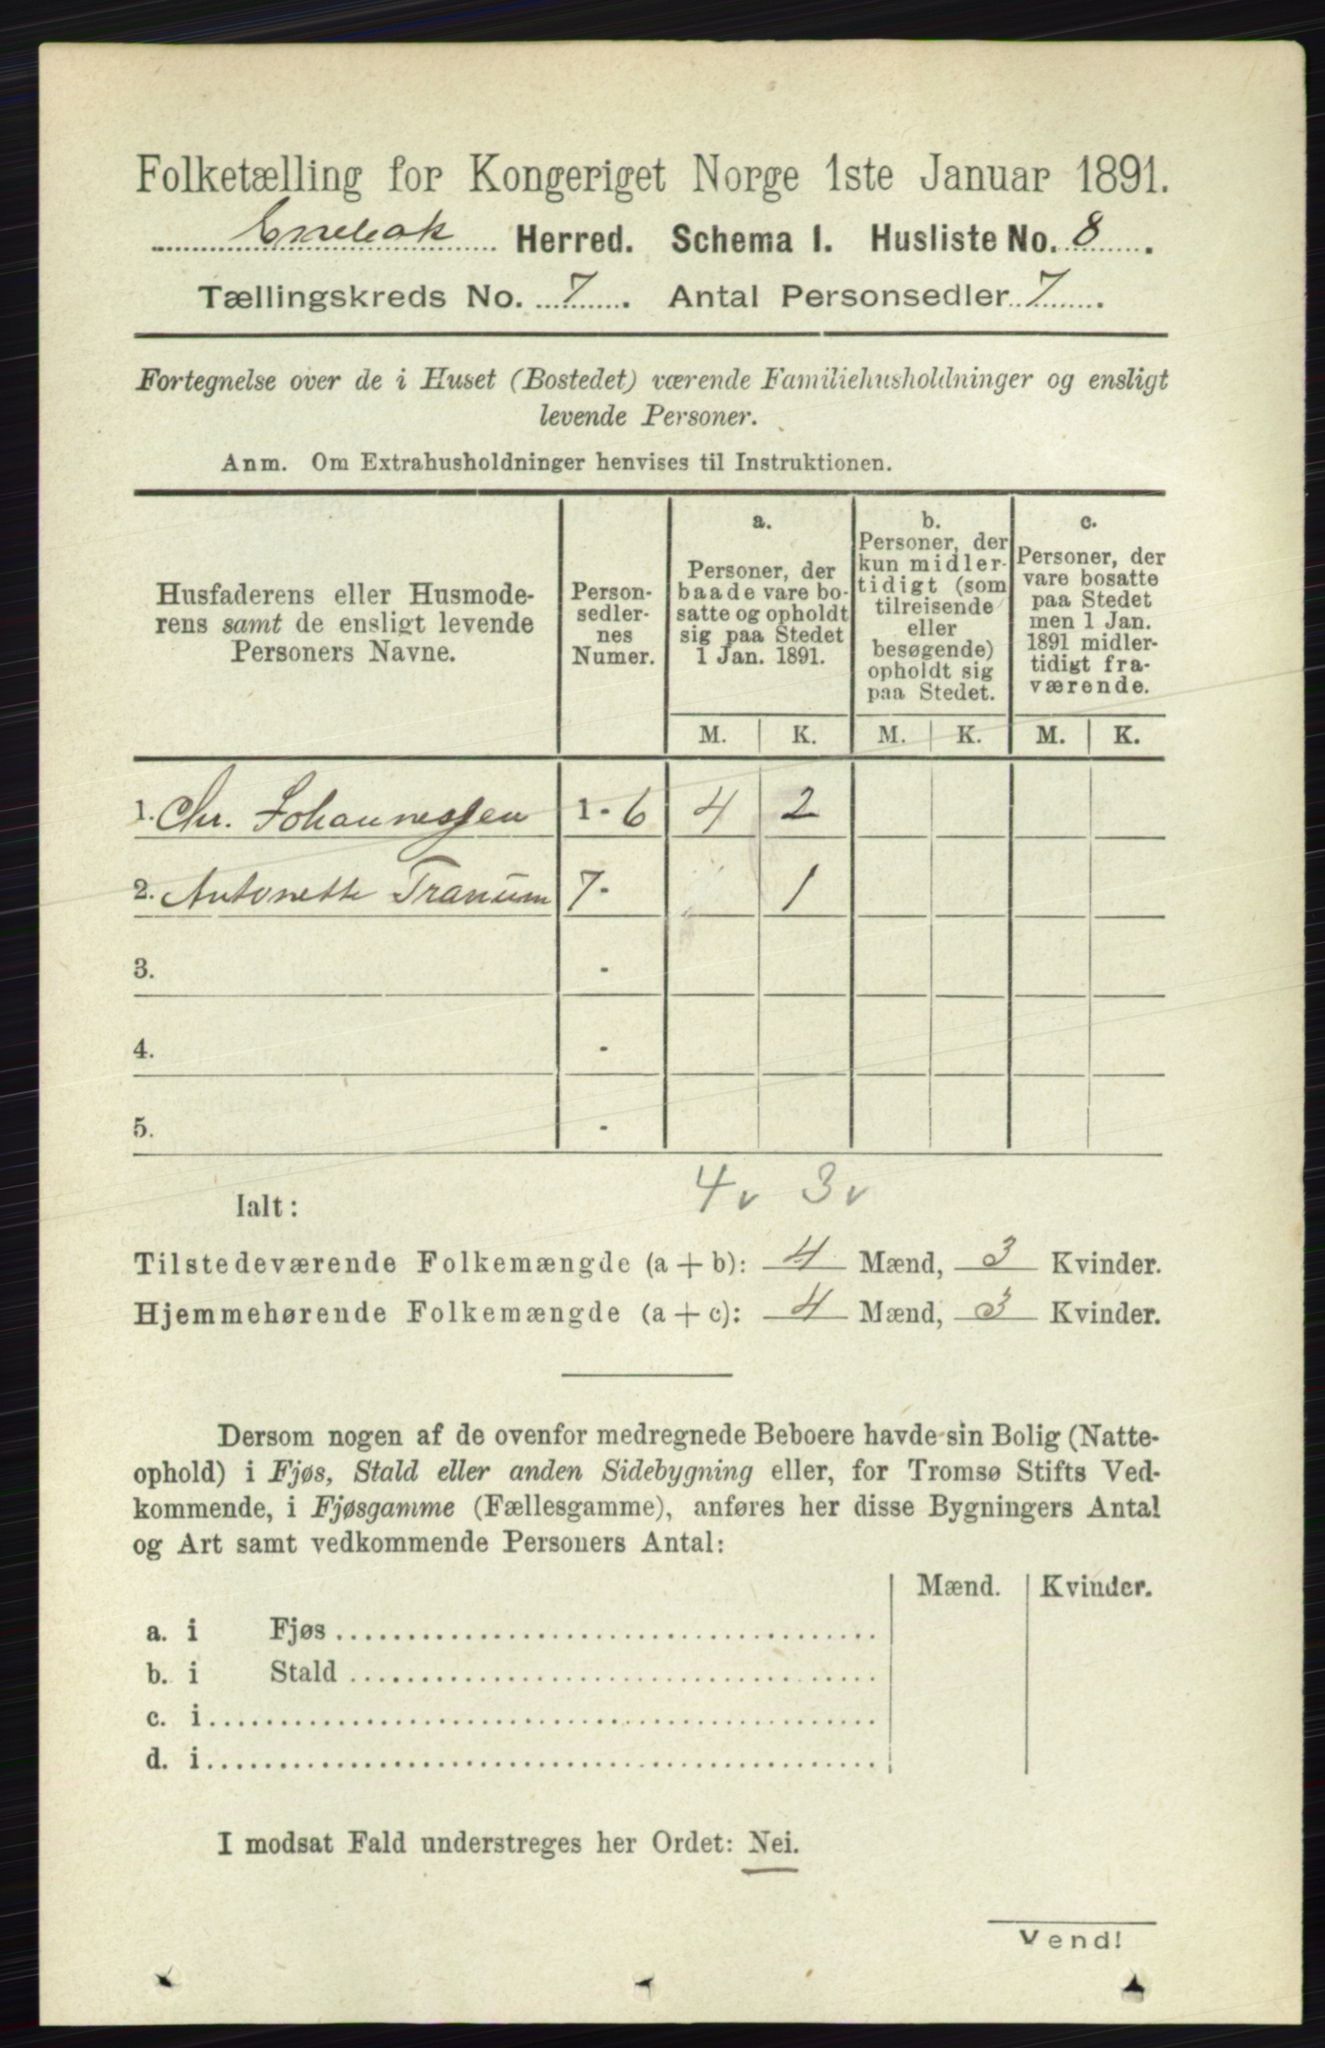 Folketælling for Kongeriget Norge 1ste Januar 1891.
Enebak Herred. Schema I. Husliste No. 8.
Tællingskreds No. 7. Antal Personsedler 7.
Fortegnelse over de i Huset (Bostedet) værende Familiehusholdninger og ensligt
levende Personer.
Anm. Om Extrahusholdninger henvises til Instruktionen.
Husfaderens eller Husmode-
rens samt de ensligt levende
Personers Navne.
Person-
sedler-
nes
Numer.
a.
Personer, der
baade vare bo-
satte og opholdt
sig paa Stedet
1 Jan. 1891.
b.
Personer, der
kun midler-
tidigt (som
tilreisende
eller
besøgende)
opholdt sig
paa Stedet.
c.
Personer, der
vare bosatte
paa Stedet
men 1 Jan.
1891 midler-
tidigt fra-
værende.
M. K. M. K. M. K.
1. Chr. Johannessen 1-6 4 2
2. Antonette Tranum 7- 1
3. -
4. -
5. -
4 v 3 v
Ialt:
Tilstedeværende Folkemængde (a + b): 4 Mænd, 3 Kvinder.
Hjemmehørende Folkemængde (a + c): 4 Mænd, 3 Kvinder.
Dersom nogen af de ovenfor medregnede Beboere havde sin Bolig (Natte-
ophold) i Fjøs, Stald eller anden Sidebygning eller, for Tromsø Stifts Ved-
kommende, i Fjøsgamme (Fællesgamme), anføres her disse Bygningers Antal
og Art samt vedkommende Personers Antal:
Mænd. Kvinder.
a. i Fjøs
b. i Stald
c. i
d. i
I modsat Fald understreges her Ordet: Nei.
Vend!